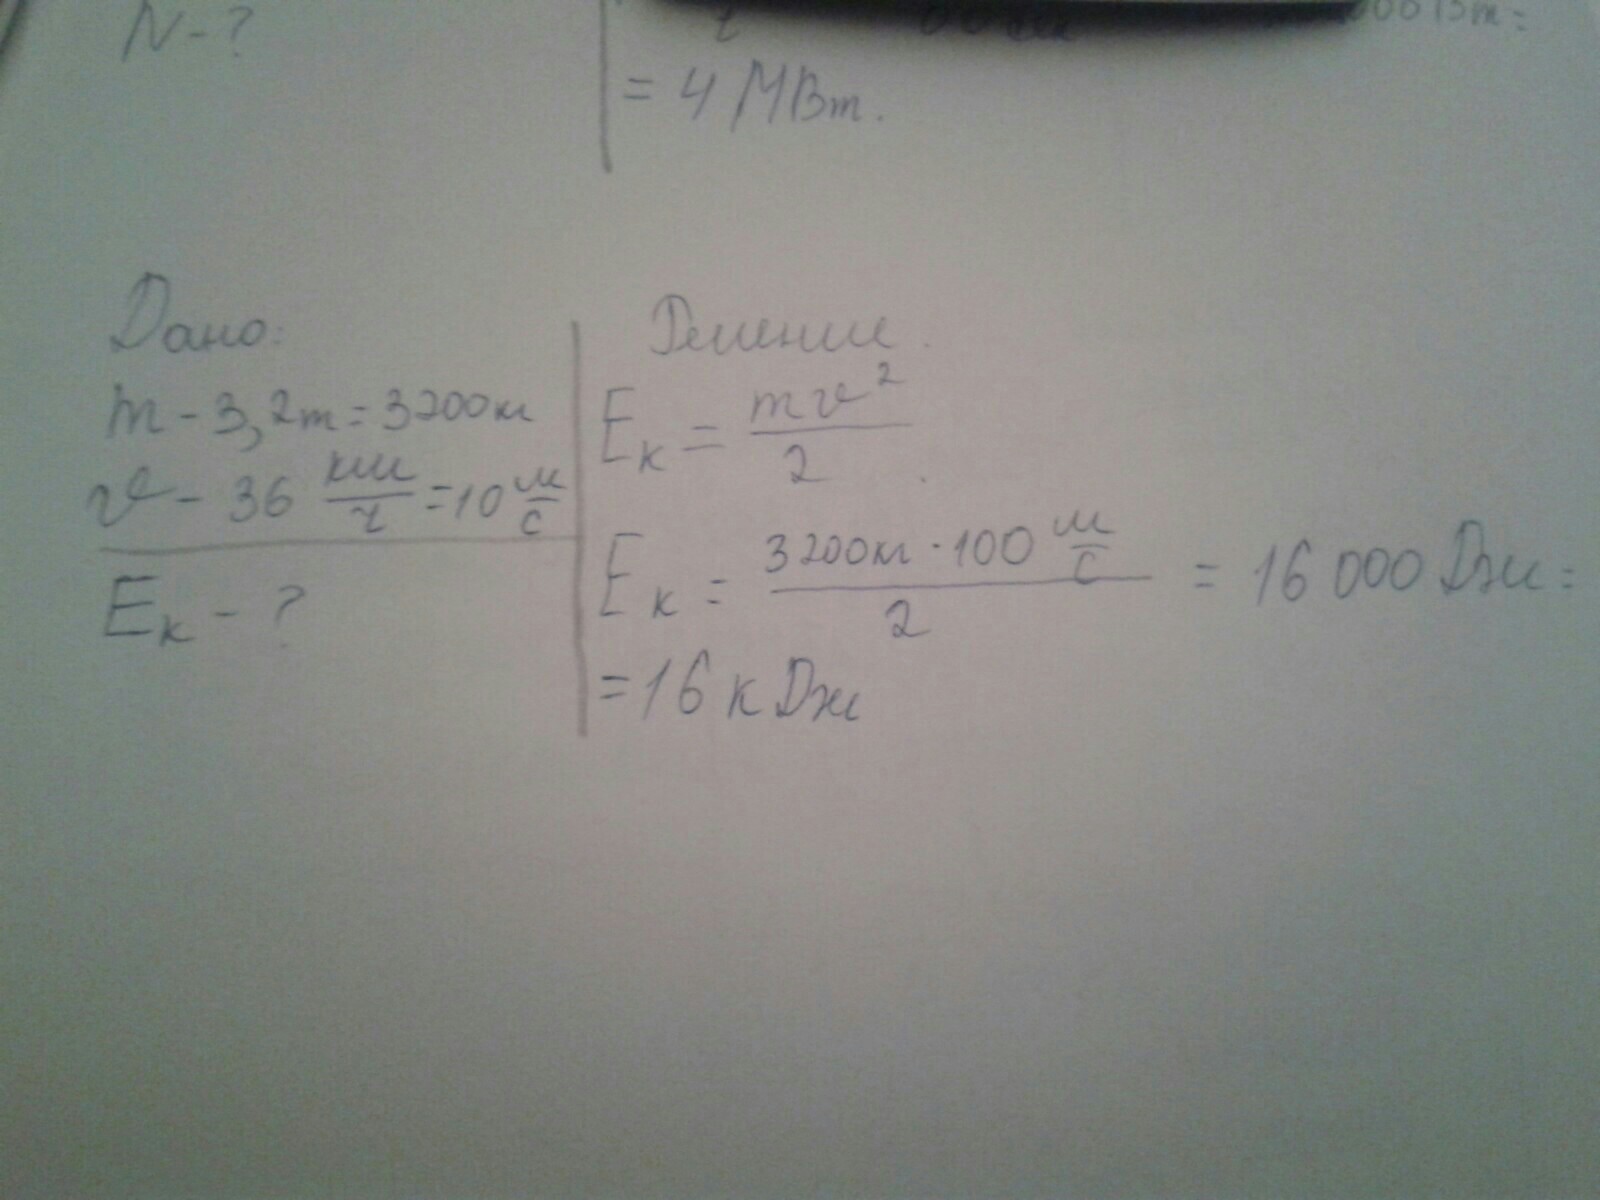 N - ?
= 4 МВт.
Дано:
m - 3,2т = 3200кг
v - 36 км/ч = 10 м/с
Eк - ?
Решение.
Eк = mv²/2
Eк = 3200кг · 100 м/с / 2 = 16 000 Дж =
= 16 кДж